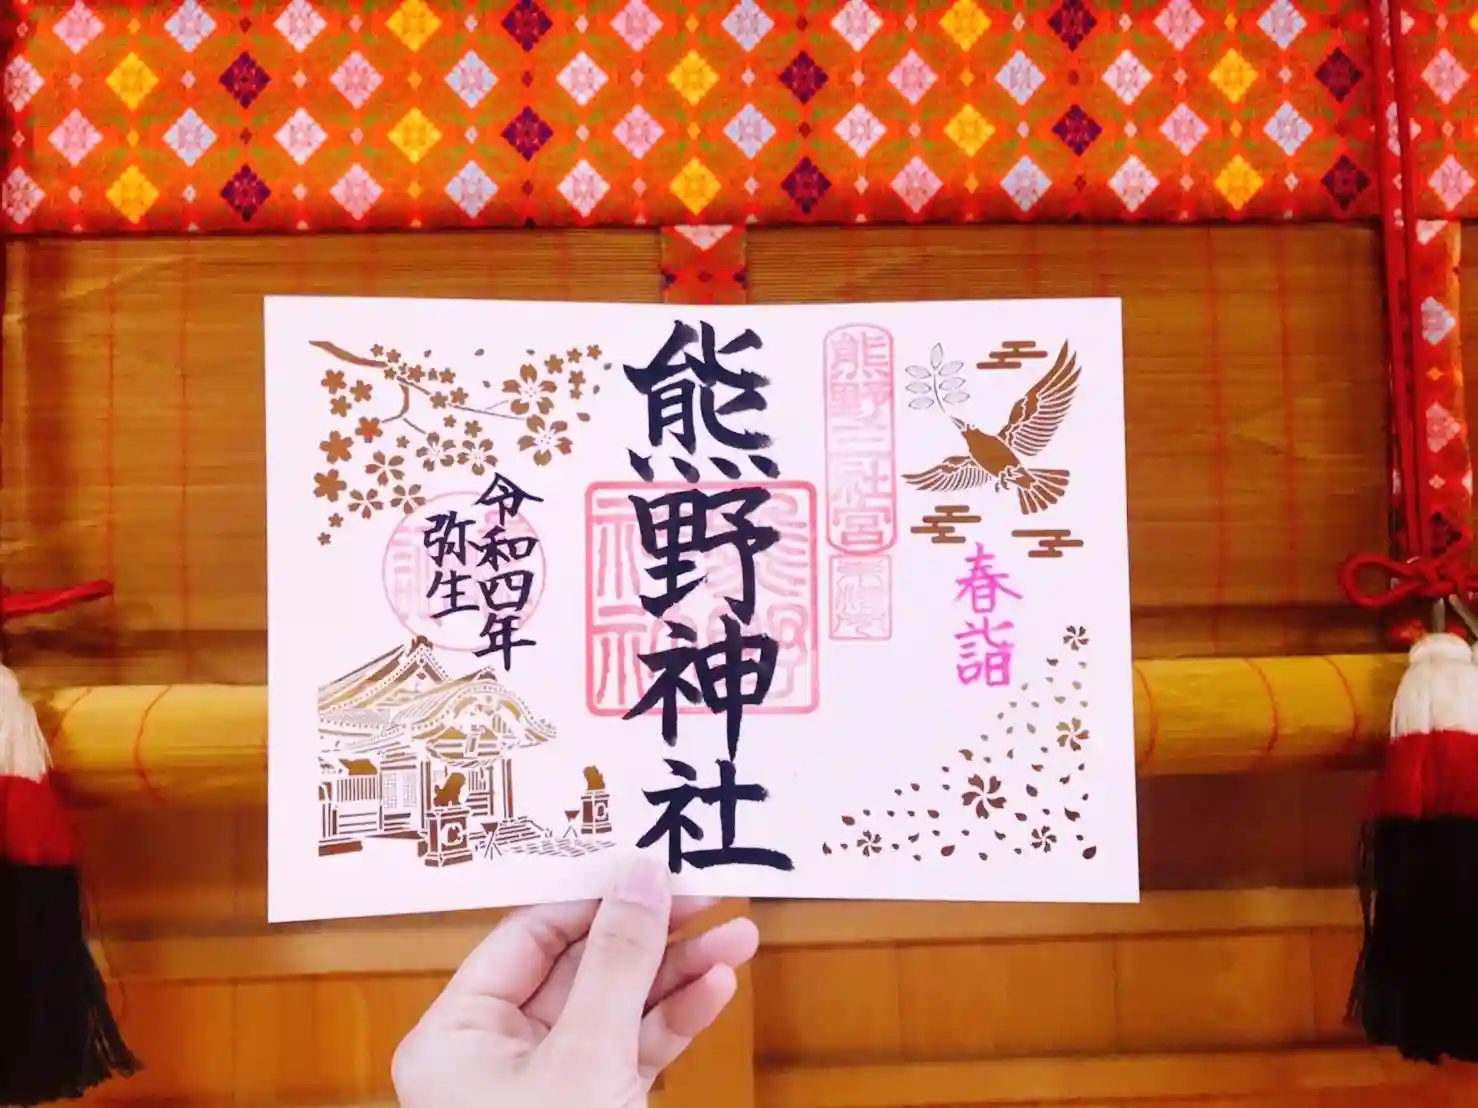 春詣
熊野三社宮
熊野神社
令和四年
弥生